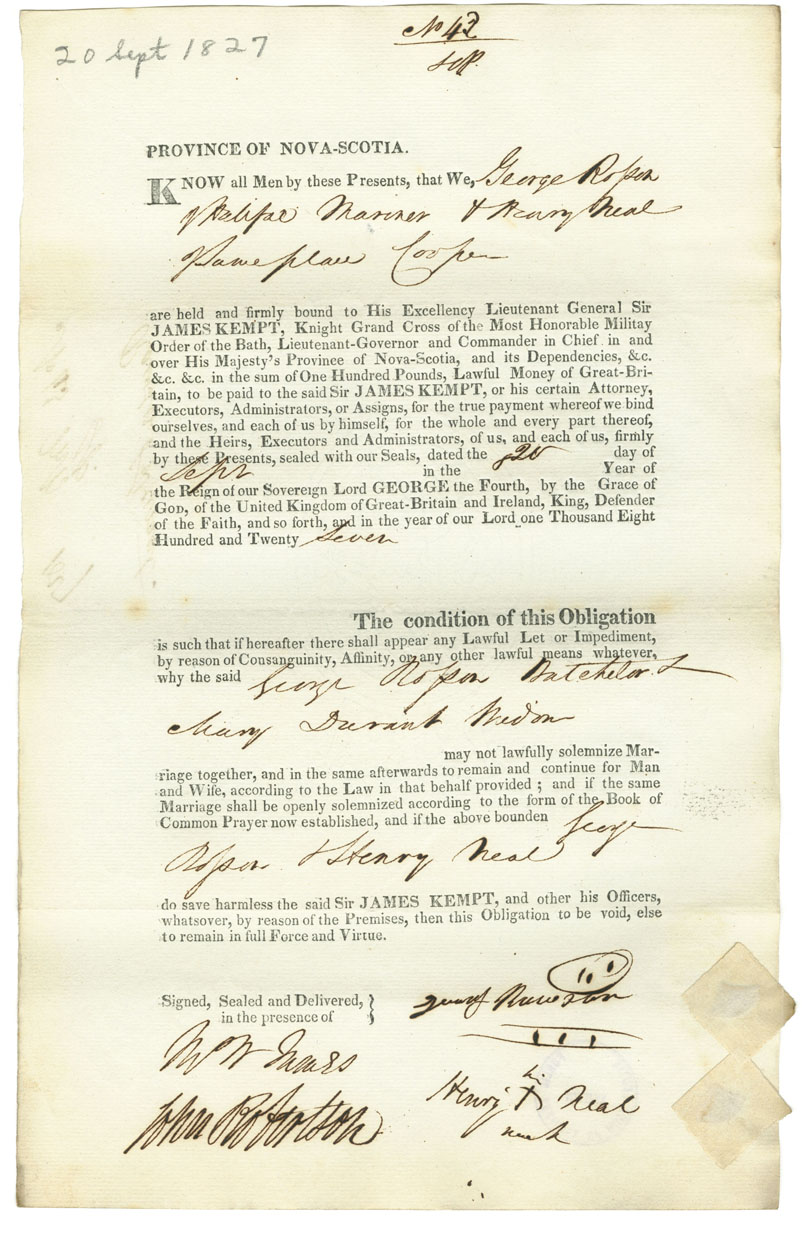 20 Sept 1827
No 42
PROVINCE OF NOVA-SCOTIA.
KNOW all Men by these Presents, that We, George Roſson
of Halifax Mariner & Henry Neal
Same place Cooper
are held and firmly bound to His Excellency Lieutenant General Sir
JAMES KEMPT, Knight Grand Cross of the Most Honorable Militay
Order of the Bath, Lieutenant-Governor and Commander in Chief in and
over His Majesty's Province of Nova-Scotia, and its Dependencies, &c.
&c. &c. in the sum of One Hundred Pounds, Lawful Money of Great-Bri-
tain, to be paid to the said Sir JAMES KEMPT, or his certain Attorney,
Executors, Administrators, or Assigns, for the true payment whereof we bind
ourselves, and each of us by himself, for the whole and every part thereof,
and the Heirs, Executors and Administrators, of us, and each of us, firmly
by these Presents, sealed with our Seals, dated the 20 day of
Sept in the Year of
the Reign of our Sovereign Lord GEORGE the Fourth, by the Grace of
GOD, of the United Kingdom of Great-Britain and Ireland, King, Defender
of the Faith, and so forth, and in the year of our Lord one Thousand Eight
Hundred and Twenty Seven
The condition of this Obligation
is such that if hereafter there shall appear any Lawful Let or Impediment,
by reason of Consanguinity, Affinity, or any other lawful means whatever,
why the said George Roſson Batchelor &
Mary Durant Widow
may not lawfully solemnize Mar-
riage together, and in the same afterwards to remain and continue for Man
and Wife, according to the Law in that behalf provided ; and if the same
Marriage shall be openly solemnized according to the form of the Book of
Common Prayer now established, and if the above bounden George
Roſson & Henry Neal
do save harmless the said Sir JAMES KEMPT, and other his Officers,
whatsover, by reason of the Premises, then this Obligation to be void, else
to remain in full Force and Virtue.
Signed, Sealed and Delivered,
in the presence of
John Robertson
his
Henry X Neal
mark